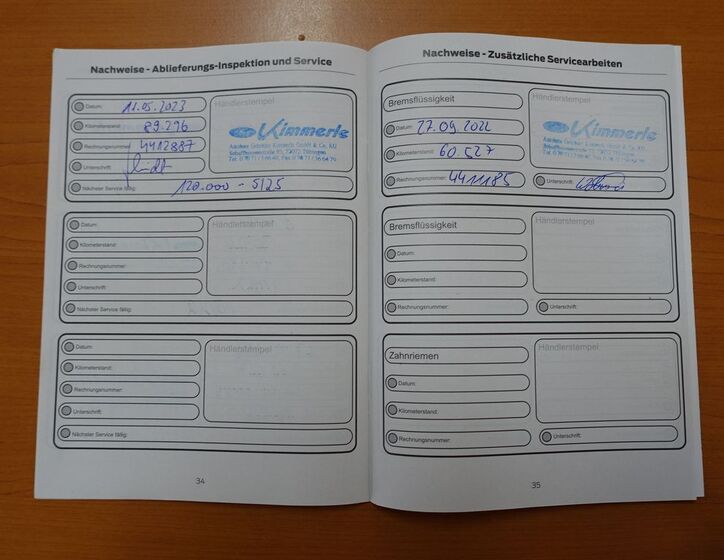 Nachweise - Ablieferungs-Inspektion und Service
Datum: 11.05.2023
Kilometerstand: 89.296
Rechnungsnummer: 4412887
Unterschrift:
Nächster Service fällig: 120.000 - 5/25
Händlerstempel
Kimmerle
Datum:
Kilometerstand:
Rechnungsnummer:
Unterschrift:
Nächster Service fällig:
Händlerstempel
Datum:
Kilometerstand:
Rechnungsnummer:
Unterschrift:
Nächster Service fällig:
Händlerstempel
34
Nachweise - Zusätzliche Servicearbeiten
Bremsflüssigkeit
Datum: 27.09.2022
Kilometerstand: 60.527
Rechnungsnummer: 4411185
Händlerstempel
Kimmerle
Unterschrift:
Bremsflüssigkeit
Datum:
Kilometerstand:
Rechnungsnummer:
Händlerstempel
Unterschrift:
Zahnriemen
Datum:
Kilometerstand:
Rechnungsnummer:
Händlerstempel
Unterschrift:
35